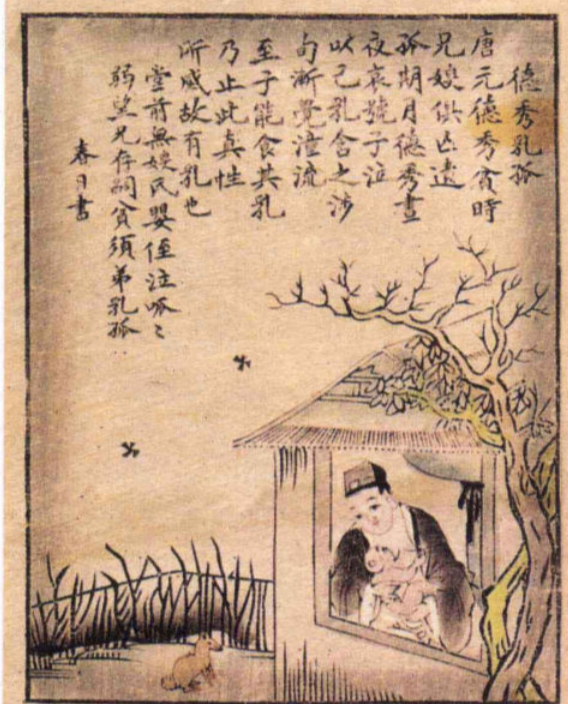 德秀乳孤
唐元德秀貧時
兄嫂俱亡遺
孤期月德秀晝
夜哀號子泣
以己乳含之涉
旬漸覺湩流
至子能食其乳
乃止此真性
所感故有乳也
堂前無嫂民嬰侄泣呱〻
弱望兄存嗣貧須弟乳孤
春日書